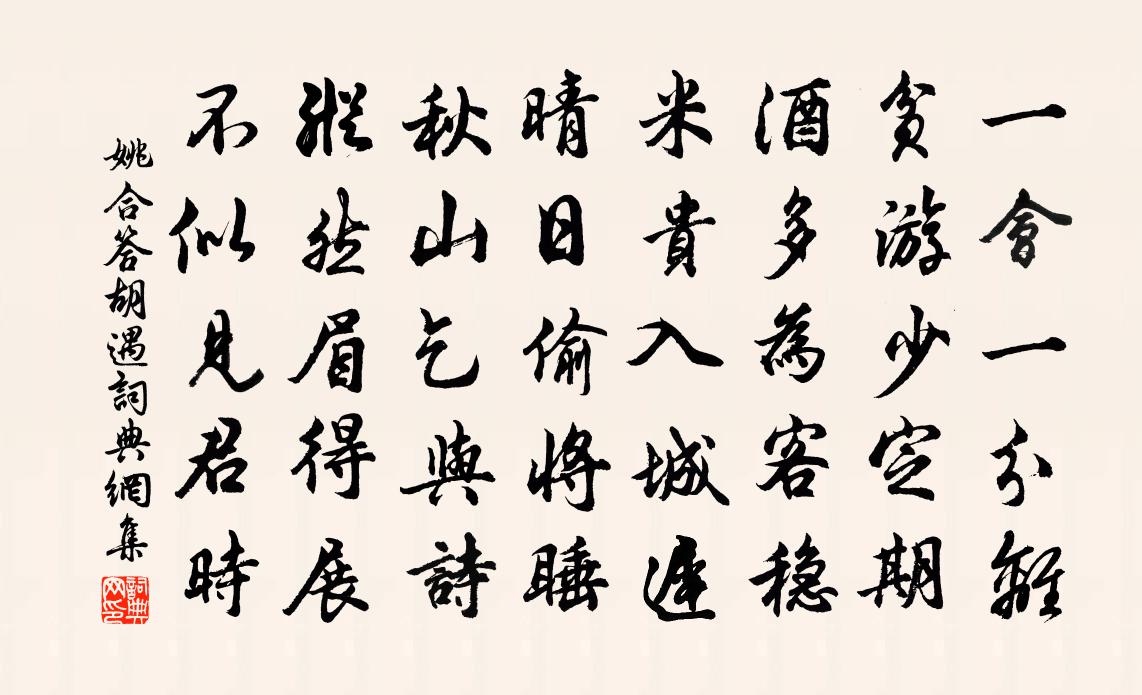 一會一分離
貧游少定期
酒多為客穏
米貴入城遲
晴日偷將睡
秋山乞與詩
縱然眉得展
不似見君時
姚合答胡遇詞典網集
詞典網印